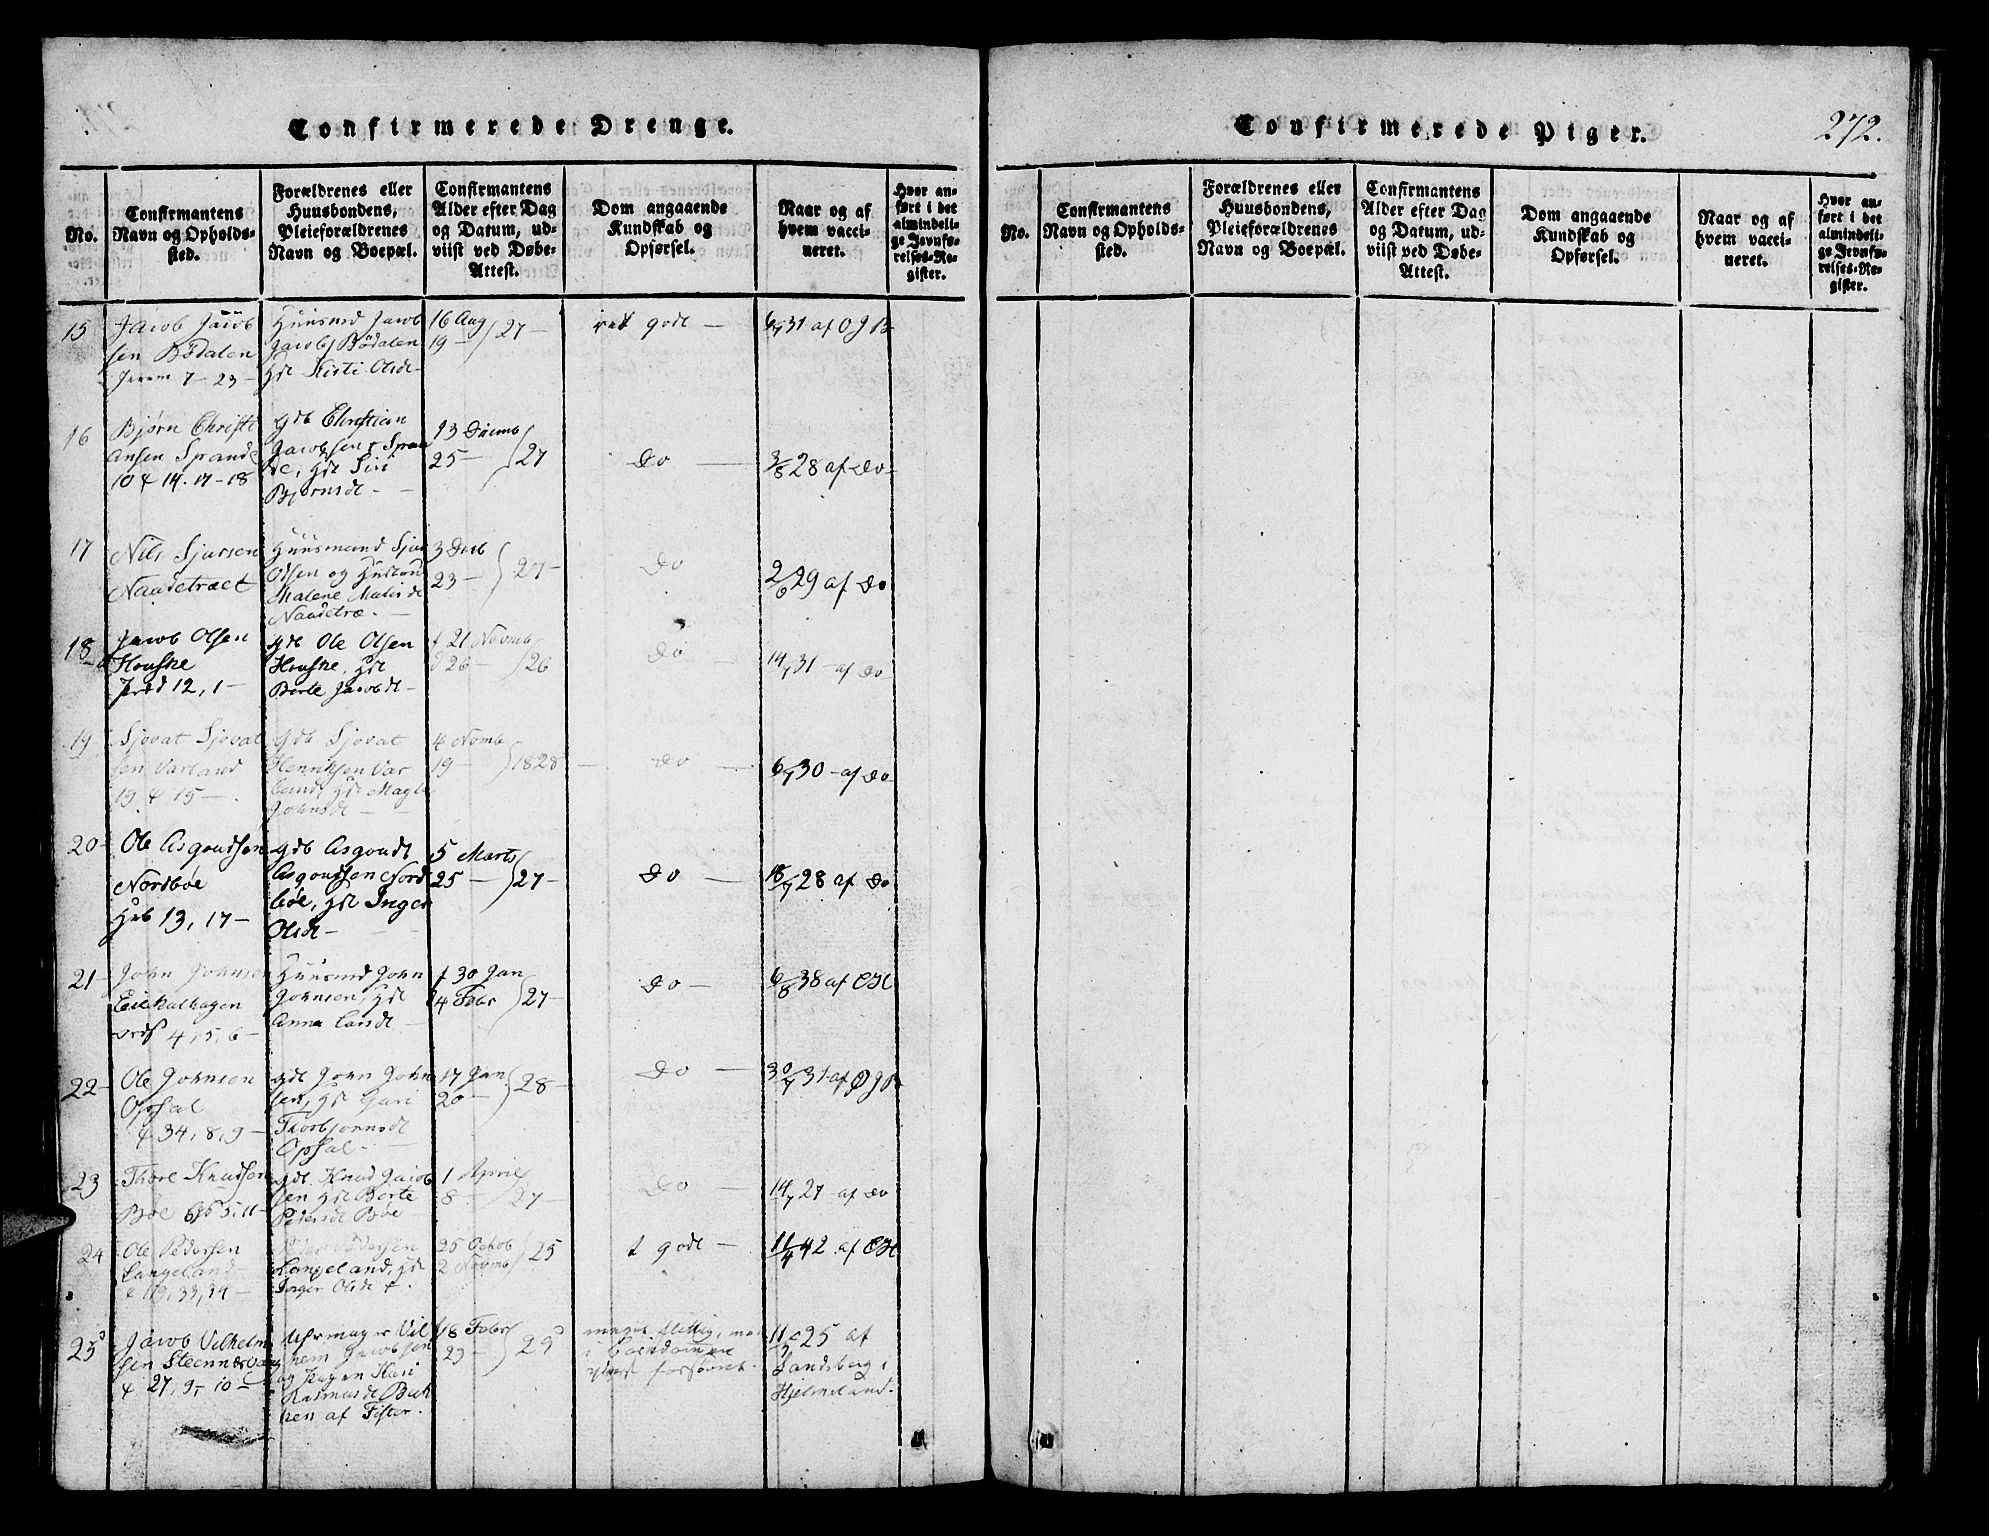 Confirmerede Drenge.
No.
Confirmantens
Navn og Opholds-
sted.
Forældrenes eller
Huusbondens,
Pleieforældrenes
Navn og Boepæl.
Confirmantens
Alder efter Dag
og Datum, ud-
viist ved Døbe-
Attest.
Dom angaaende
Kundskab og
Opførsel.
Naar og af
hvem vacci-
neret.
Hvor an-
ført i det
almindeli-
ge Jevnfø-
relses-Re-
gister.
15
Jacob Jacob
sen Bödalen
7-23-
Huusmd Jacob
Jacobs Bödalen
Hst Kisti Olsdt-
16 Aug
19- 27-
godt -
6/7 31 af O J B
16
Bjørn Christi
ansen Spande
10 & 14. 17-18
Gdb Christian
Jacobsen
de, Hst Siri
Bjørnsdt -
13
25- 27
do -
3/8 28 af do-
17
Nils Sjursen
Naadetræet
Huusmand
Olsen og Hustru
Malene
Naadetræ. -
3 Decb
23- 27-
do
2/6 29 af do
18
Jacob Olsen
Houske
12, 1-
Gdb Ole Olsen
Houske, Hst
Berte Jacobdt-
f 21 Novmb
d 26- 26
do
14/7 31- af do
19
Sjovat Sjovat
sen Varland
19 & 15-.
Gdb Sjovat
Henriksen Var
land, Hst
Johnsdt -
4 Novmb
19- 1828
- do -
6/7 30- af do
20-
Ole Asgoudsen
Nordbøe
13, 17-
Gdb Asgoudt
Asgoudsen Nord
böe, Hst Inger
Olsdt -
5 Marts
25- 27-
do -
18/7 28 af do
21-
John Johnsen
4, 5, 6-
Huusmd John
Johnsen, Hst
Anna Larsdt-
f 30 Jan
d 4 Febr 27-
do-
6/8 38 af CH
22-
Ole Johnsen
Opsal
& 34, 8, 9-
Gdb John John
sen, Hst Guri
Thorbjornsdt
Opsal-
17 Jan
20- 28-
do -
30/7 31- af O J B
23
Thore Knudsen
Bøe 5. 11-
Gdb. Knud Jacob
sen Hst Berte
Pedersdt Bøe-
1 April
8- 27-
do -
14/7 27 af do
24
Ole Pedersen
Langeland
& 19, 33, 34-
Pedersen
Langeland, Hst
Inger Olsdt +.
25 Octob
2 Novmb 25
t godt -
11/4 42 af CH
25
Jacob Vilhelm
sen Steennæsvaag
& 27, 9- 10-
Vil
hem Jacobsen
og Kari
Rasmusdt Bak
ken af Fister.
18 Febr
23- 25
meget flittig,
i
11/7 25 af
Landsberg i
Hjelmeland.
Confirmerede Piger.
272.
No.
Confirmantens
Navn og Opholds-
sted.
Forældrenes eller
Huusbondens,
Pleieforældrenes
Navn og Boepæl.
Confirmantens
Alder efter Dag
og Datum, ud-
viist ved Døbe-
Attest.
Dom angaaende
Kundskab og
Opførsel.
Naar og af
hvem vacci-
neret.
Hvor an-
ført i det
almindeli-
ge Jevnfø-
relses-Re-
gister.